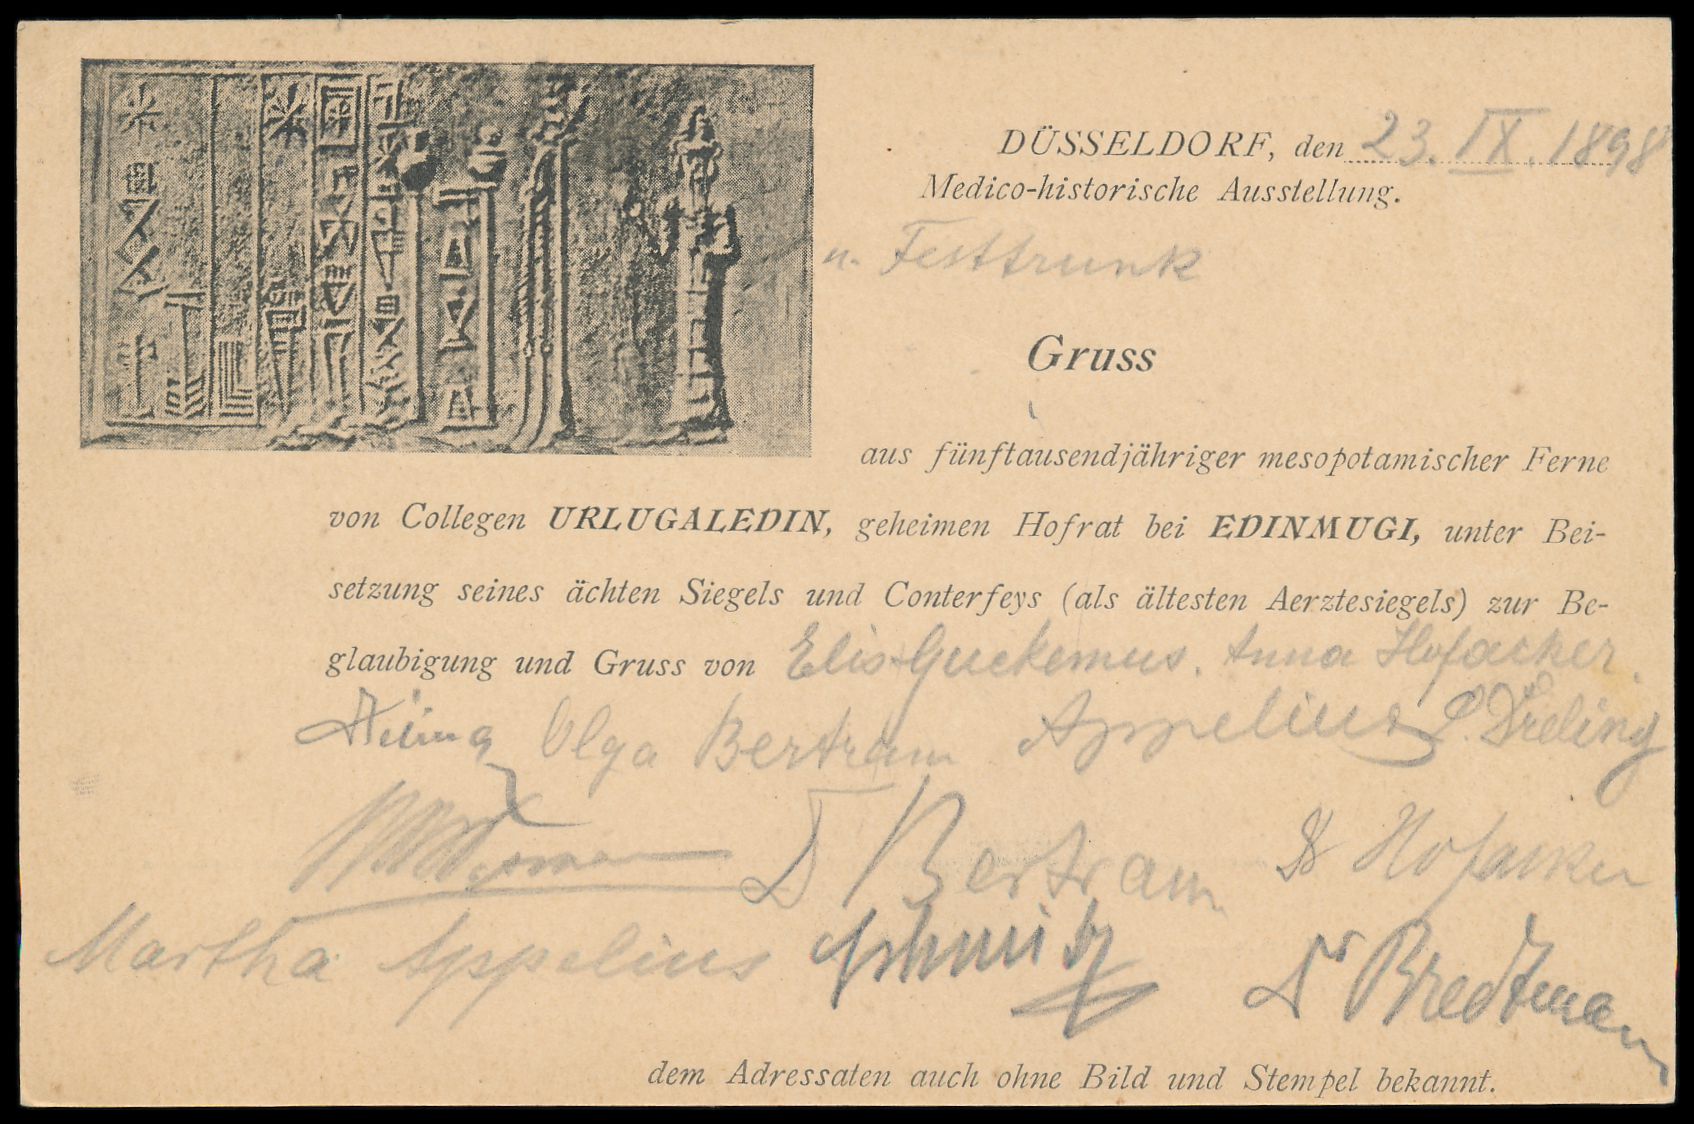 DÜSSELDORF, den 23. IX. 1898
Medico-historische Ausstellung.
u. Festtrunk
Gruss
aus fünftausendjähriger mesopotamischer Ferne
von Collegen URLUGALEDIN, geheimen Hofrat bei EDINMUGI, unter Bei-
setzung seines ächten Siegels und Conterfeys (als ältesten Aerztesiegels) zur Be-
glaubigung und Gruss von Elis Guckemus. Anna Hofacker.
Olga Bertram Appelius Dreling
Dr Bertram Dr Hofacker
Martha Appelius Schmitz Dr Bredtmann
dem Adressaten auch ohne Bild und Stempel bekannt.